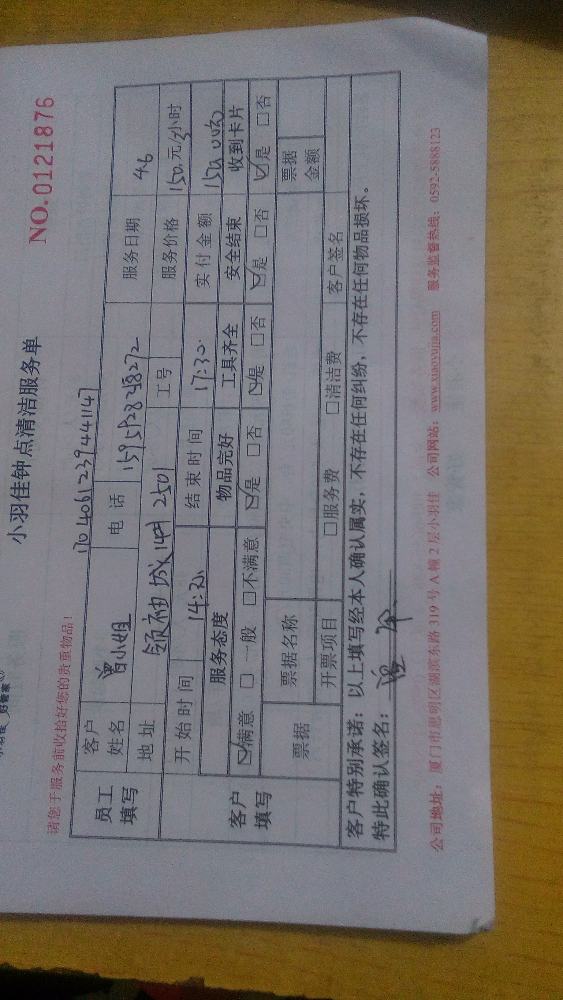 小羽佳钟点清洁服务单
NO.0121876
请您于服务前收拾好您的贵重物品！
员工填写
客户姓名 曾小姐 电话 15959288272 服务日期 4.6
地址 领袖城 2501 工号 服务价格 150元/3小时
开始时间 14:30 结束时间 17:30 实付金额 150
客户填写
服务态度 物品完好 工具齐全 安全结束 收到卡片
☑满意 □一般 □不满意 ☑是 □否 ☑是 □否 ☑是 □否 ☑是 □否
票据 票据名称 票据金额
开票项目 □服务费 □清洁费 客户签名
客户特别承诺：以上填写经本人确认属实，不存在任何纠纷，不存在任何物品损坏。
特此确认签名：
公司地址：厦门市思明区湖滨东路319号A幢2层小羽佳 公司网站：www.xiaoyujia.com 服务监督热线：0592-5888123